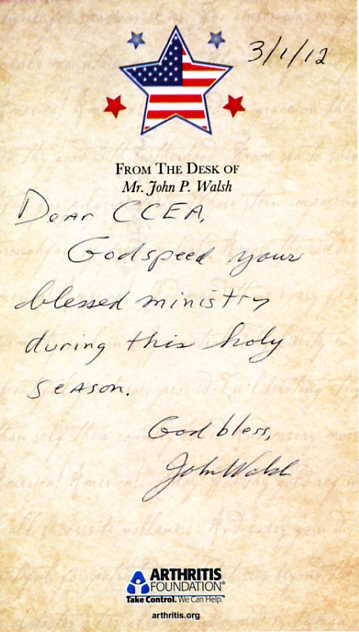 3/1/12
FROM THE DESK OF
Mr. John P. Walsh
Dear CCEA,
Godspeed your
blessed ministry
during this holy
season.
God bless,
John Walsh
ARTHRITIS
FOUNDATION®
Take Control. We Can Help.™
arthritis.org